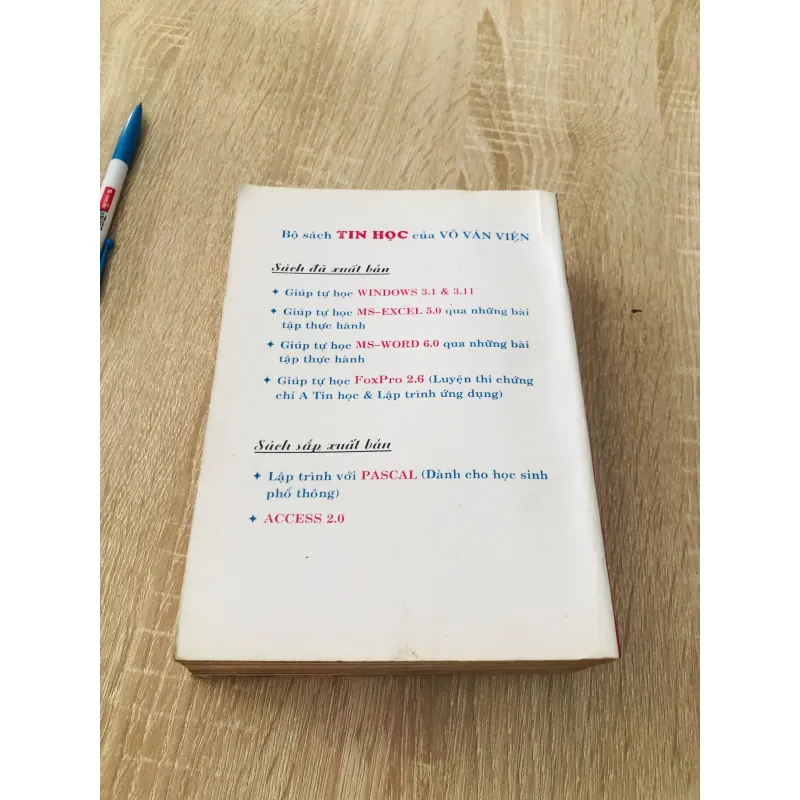 Bộ sách TIN HỌC của VÕ VĂN VIỆN
Sách đã xuất bản
✦ Giúp tự học WINDOWS 3.1 & 3.11
✦ Giúp tự học MS–EXCEL 5.0 qua những bài
tập thực hành
✦ Giúp tự học MS–WORD 6.0 qua những bài
tập thực hành
✦ Giúp tự học FoxPro 2.6 (Luyện thi chứng
chỉ A Tin học & Lập trình ứng dụng)
Sách sắp xuất bản
✦ Lập trình với PASCAL (Dành cho học sinh
phổ thông)
✦ ACCESS 2.0